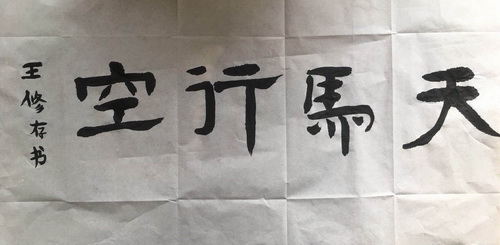 天馬行空
王修存书